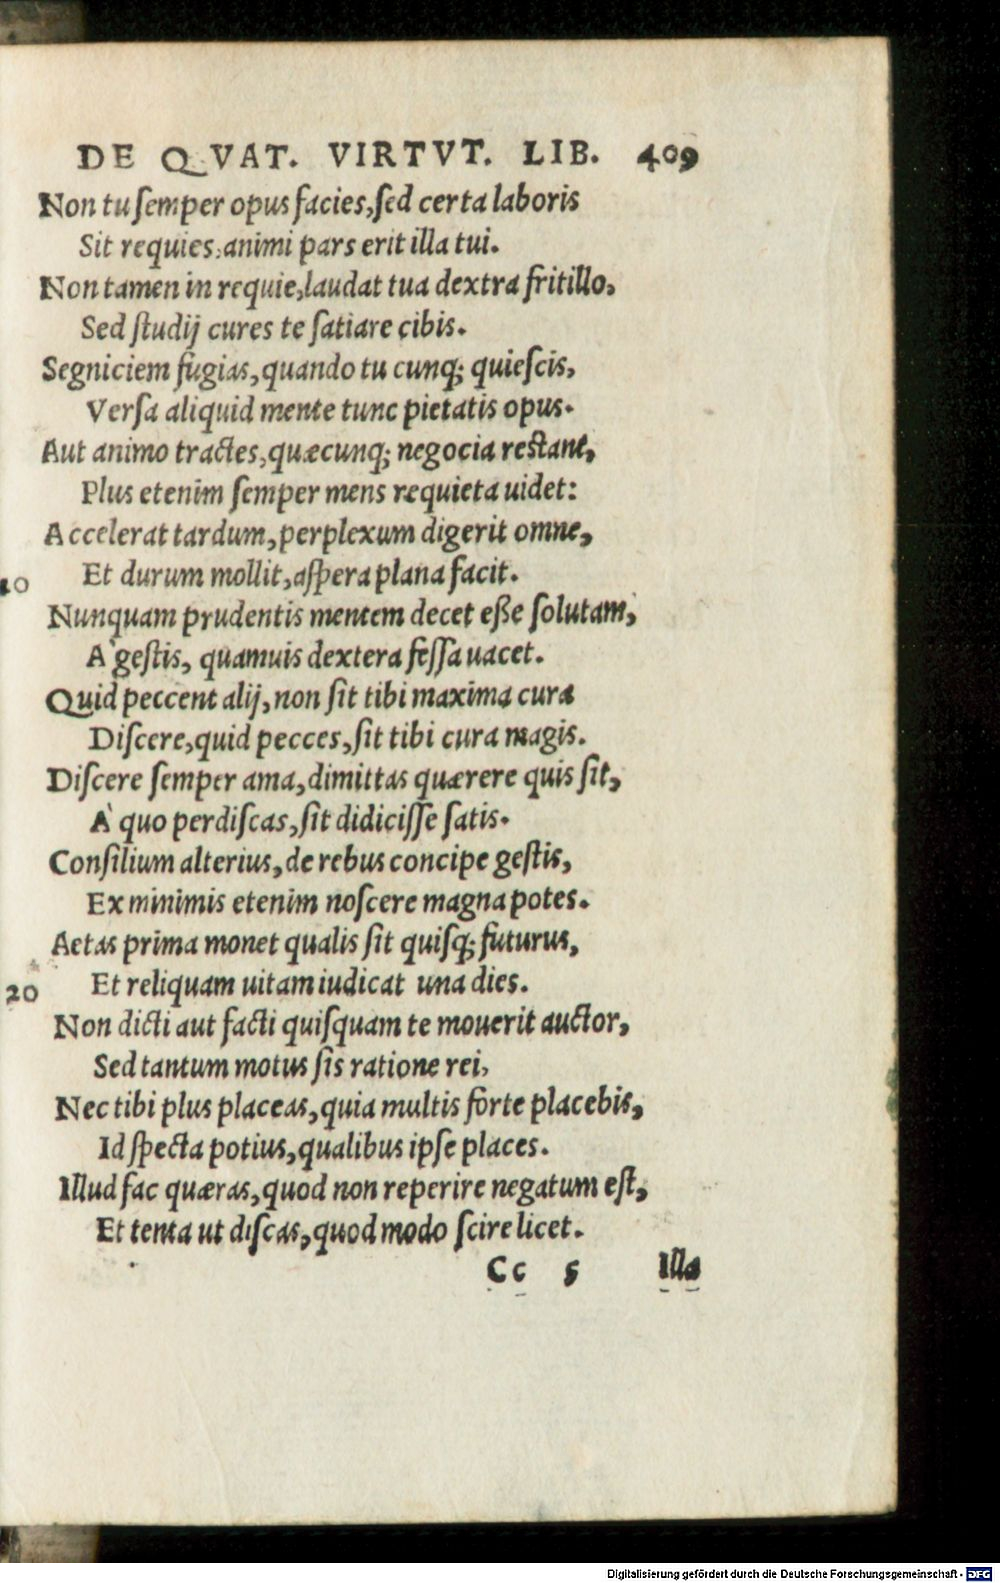 DE QVAT. VIRTVT. LIB. 409
Non tu ſemper opus facies, ſed certa laboris
Sit requies, animi pars erit illa tui.
Non tamen in requie, laudat tua dextra fritillo,
Sed ſtudij cures te ſatiare cibis.
Segniciem fugias, quando tu cunq; quieſcis,
Verſa aliquid mente tunc pietatis opus.
Aut animo tractes, quæcunq; negocia restant,
Plus etenim ſemper mens requieta uidet:
Accelerat tardum, perplexum digerit omne,
10 Et durum mollit, aſpera plana facit.
Nunquam prudentis mentem decet eße ſolutam,
A' geſtis, quamuis dextera feſſa uacet.
Quid peccent alij, non ſit tibi maxima cura
Diſcere, quid pecces, ſit tibi cura magis.
Diſcere ſemper ama, dimittas quærere quis ſit,
À quo perdiſcas, ſit didiciſſe ſatis.
Conſilium alterius, de rebus concipe geſtis,
Ex minimis etenim noſcere magna potes.
Aetas prima monet qualis ſit quiſq; futurus,
20 Et reliquam uitam iudicat una dies.
Non dicti aut facti quiſquam te mouerit auctor,
Sed tantum motus ſis ratione rei,
Nec tibi plus placeas, quia multis forte placebis,
Id ſpecta potius, qualibus ipſe places.
Illud fac quæras, quod non reperire negatum eſt,
Et tenta ut diſcas, quod modo ſcire licet.
Cc 5 Illa
Digitalisierung gefördert durch die Deutsche Forschungsgemeinschaft - DFG